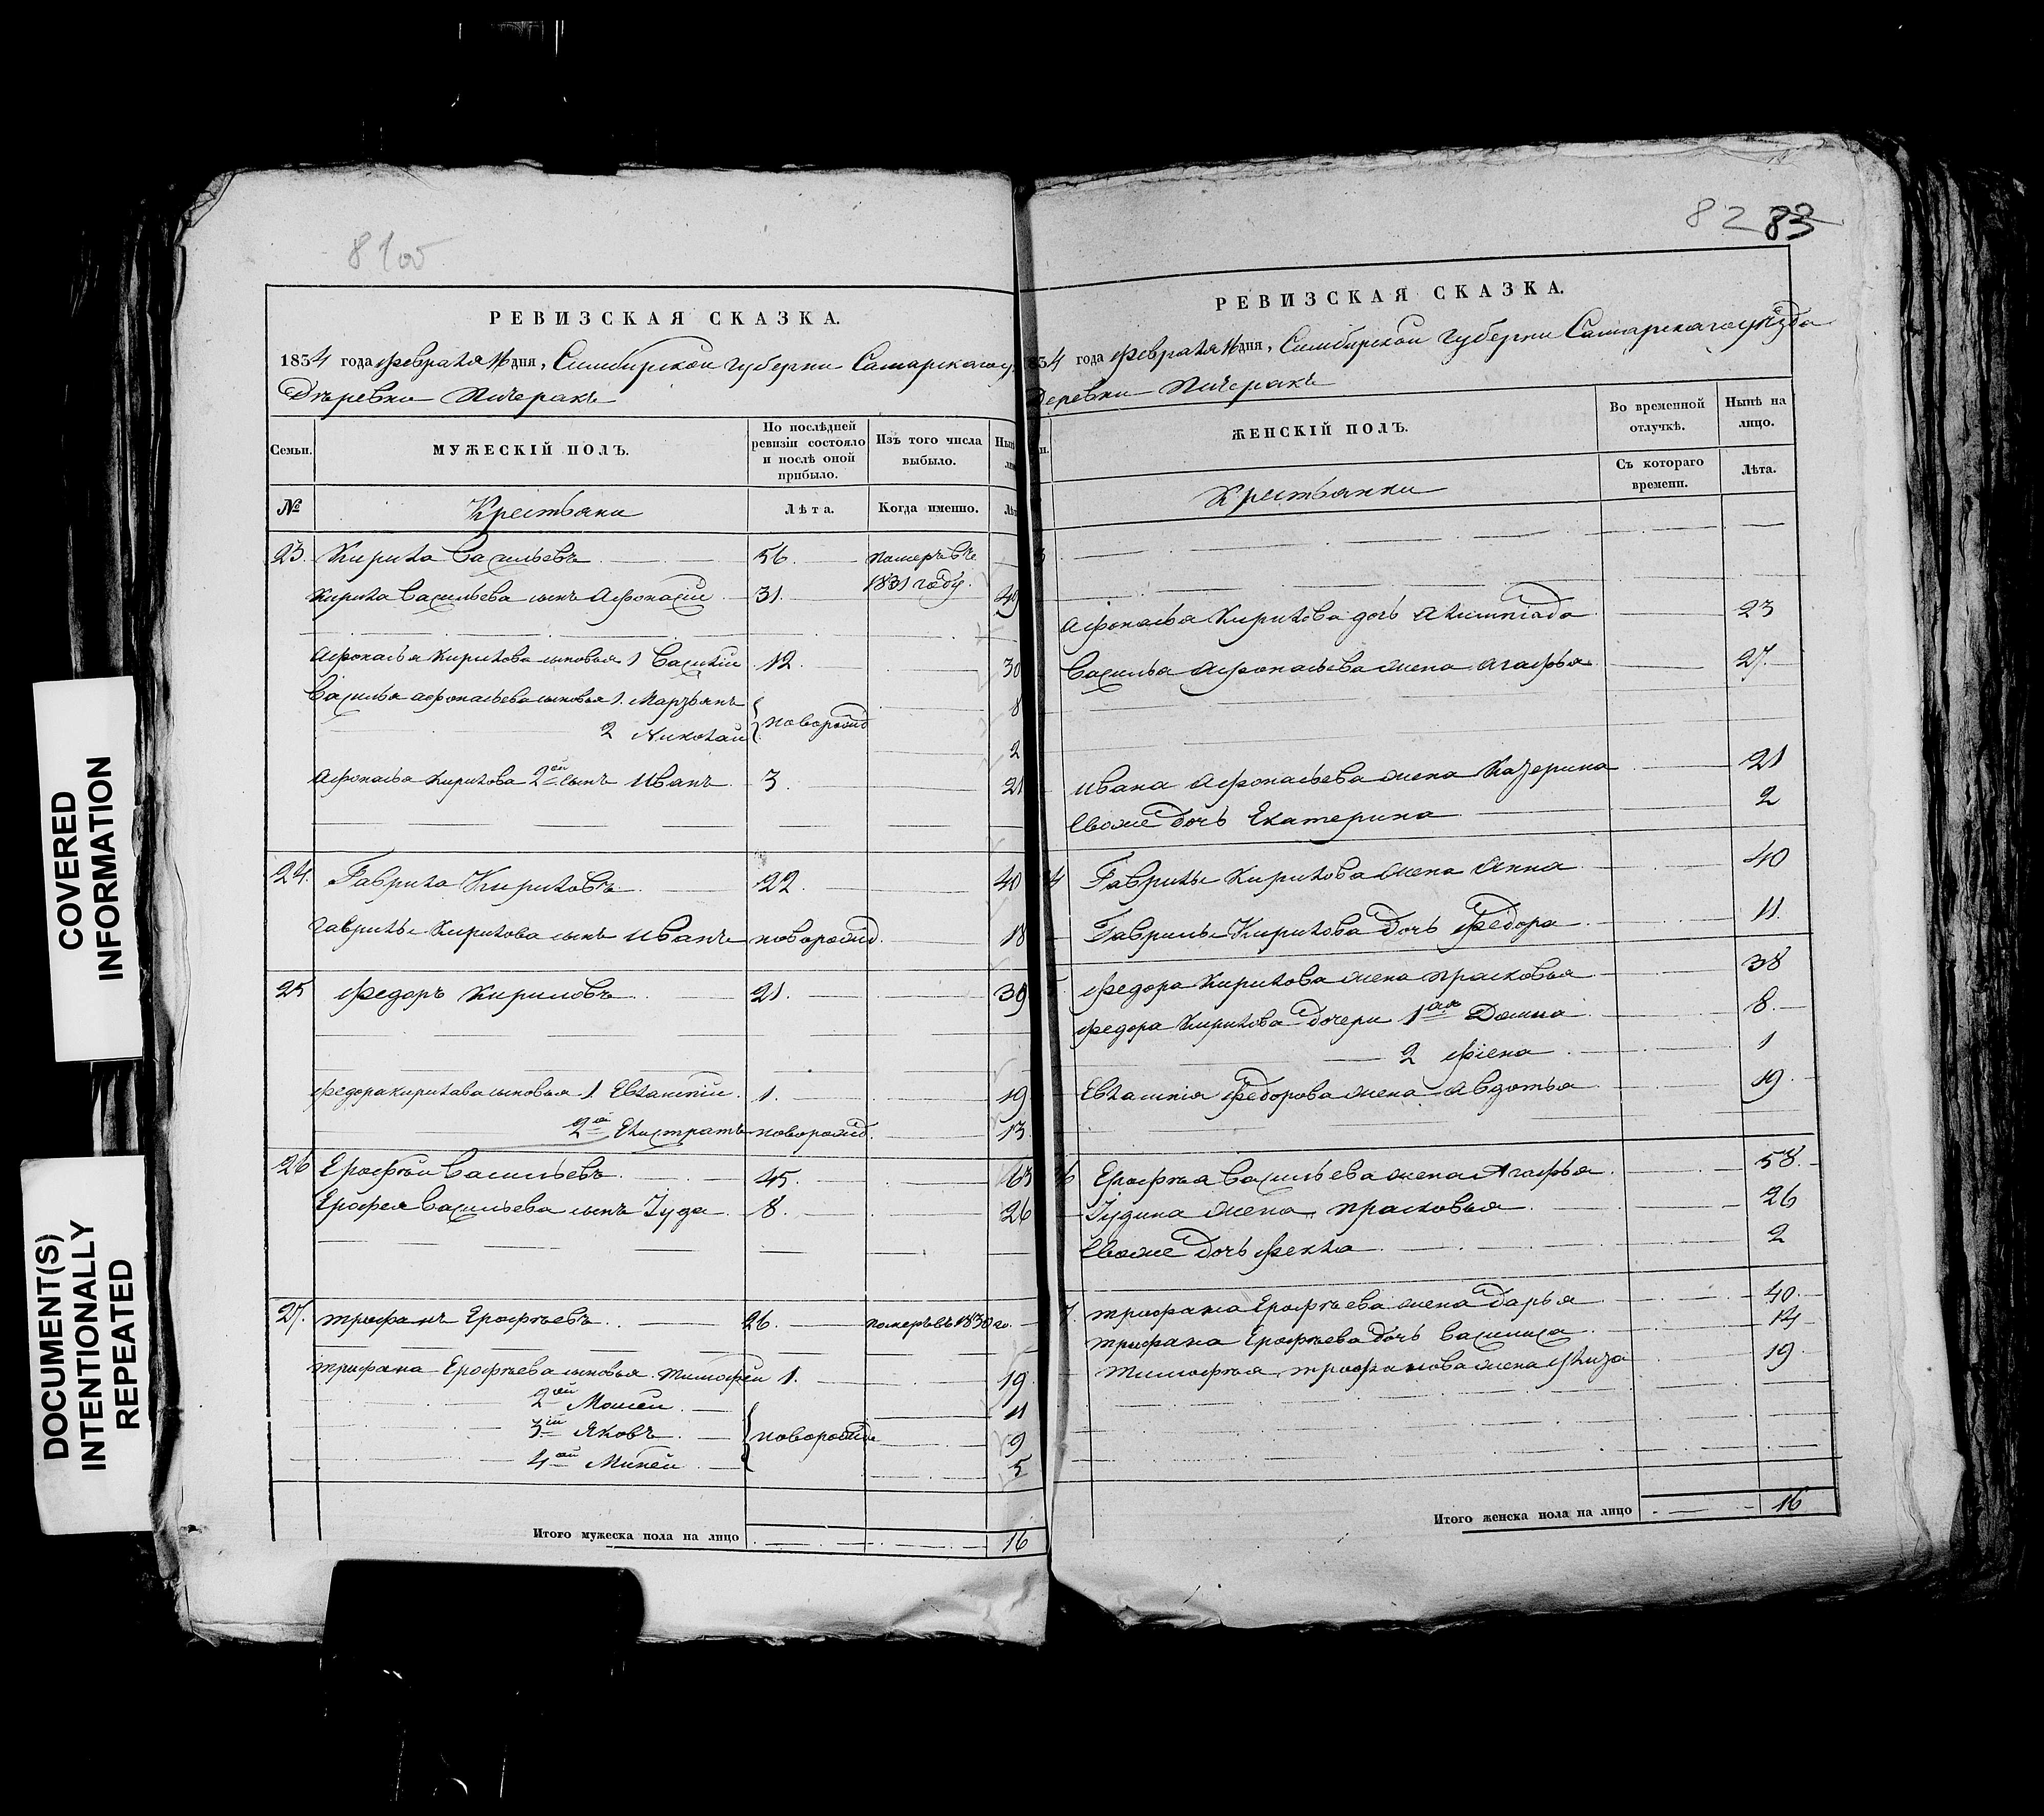 COVERED
INFORMATION
DOCUMENT(S)
INTENTIONALLY
REPEATED
РЕВИЗСКАЯ СКАЗКА.
1834 года февраля 16 дня, Симбирской губерни Самарскаго у
Дѣревни Пичеракъ
Семьи.
МУЖЕСКІЙ ПОЛЪ.
По послѣдней ревизіи состояло и послѣ оной прибыло.
Изъ того числа выбыло.
№
Крестьяни
Лѣта.
Когда именно.
23. Кирила Васильевъ 56. померъ въ
1831 году.
Кирила Васильева сынъ Афонасіи 31. 49
Афонасья Кирилова сыновья 1 Василіи 12. 30
Василья Афонасьева сыновья 1. Марзянъ 8
2 Николаи новорожд 2
Афонасья Кирилова 2ои сынъ Иванъ 3. 21
24. Гаврила Кириловъ 22. 40
Гаврилы Кирилова сынъ Иванъ новорожд. 18
25 Федоръ Кириловъ 21. 39
Федора Кирилава сыновья 1 Евлампіи 1. 19
2й Елистратъ новорожд. 13
26 Ерофѣи Васильевъ 45. 63
Ерофея Васильева сынъ Іуда 8. 26
27. Трофанъ Ерофѣевъ 26. померъ въ 1830 го.
Трофана Ерофѣева сыновья Тимофеи 1. 19
2ои Моисеи 11
3іи Яковъ новорожде 9
4ои Михеи 5
Итого мужеска пола на лицо 16
82 83
РЕВИЗСКАЯ СКАЗКА.
834 года февраля 16 дня, Симбирскои губерни Самарскаго уѣзда
Деревни Пичеракъ
ЖЕНСКІЙ ПОЛЪ.
Во временной отлучкѣ.
Нынѣ на лицо.
Съ котораго времени.
Лѣта.
Крестьянки
Афонасья Кирилова дочь Алимпіада 23
Василья Афонасьева жена Агафья 27.
Ивана Афонасьева жена Катерина 21
Евоже дочь Екатерина 2
4 Гаврилы Кирилова жена Анна 40
Гаврилы Кирилова дочь Федора 11.
Федора Кирилова жена Прасковья 38
Федора Кирилова дочери 1ая Домна 8.
2 Фіена 1
Евлампія Федорова жена Авдотья 19.
6 Ерофѣя Васильева жена Агафья 58.
Іудина жена Прасковья 26
Евоже дочь Фекла 2
7. Трофана Ерофѣева жена Дарья 40.
Трофана Ерофѣева дочь Василиса 14
Тимофѣя Трофанова жена 19.
Итого женска пола на лицо 16